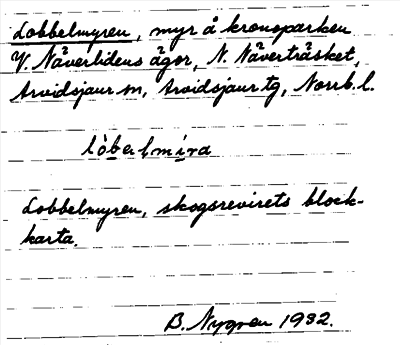 Lobbelmyren, myr å kronoparken
V. Näverlidens ägor, N. Näverträsket,
Arvidsjaur sn, Arvidsjaur tg, Norrb. l.
lòbelmíra
Lobbelmyren, skogsrevirets block-
karta.
B. Nygren 1932.